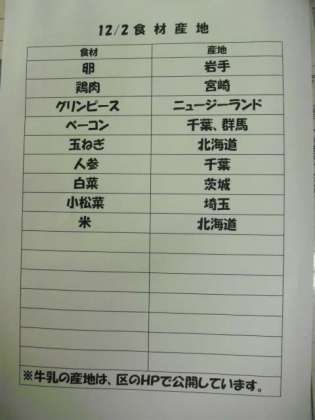 12/2食材産地
食材 産地
卵 岩手
鶏肉 宮崎
グリンピース ニュージーランド
ベーコン 千葉、群馬
玉ねぎ 北海道
人参 千葉
白菜 茨城
小松菜 埼玉
米 北海道
※牛乳の産地は、区のHPで公開しています。